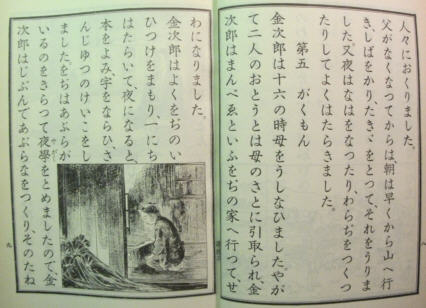 人々におくりました。
父がなくなつてからは、朝は早くから山へ行
き、しばをかり、たきゞをとつて、それをうりま
した。又夜はなはをなつたり、わらぢをつくつ
たりしてよくはたらきました。
第五 がくもん
金次郎は十六の時母をうしなひました。やが
て二人のおとうとは母のさとに引取られ、金
次郎はまんべゑといふをぢの家へ行つてせ
わになりました。
金次郎はよくをぢのい
ひつけをまもり、一にち
はたらいて、夜になると、
本をよみ、字をならひ、さ
んじゆつのけいこをし
ましたをぢはあぶらが
いるのをきらつて夜學をとめましたので、金
次郎はじぶんであぶらなをつくり、そのたね
八
九